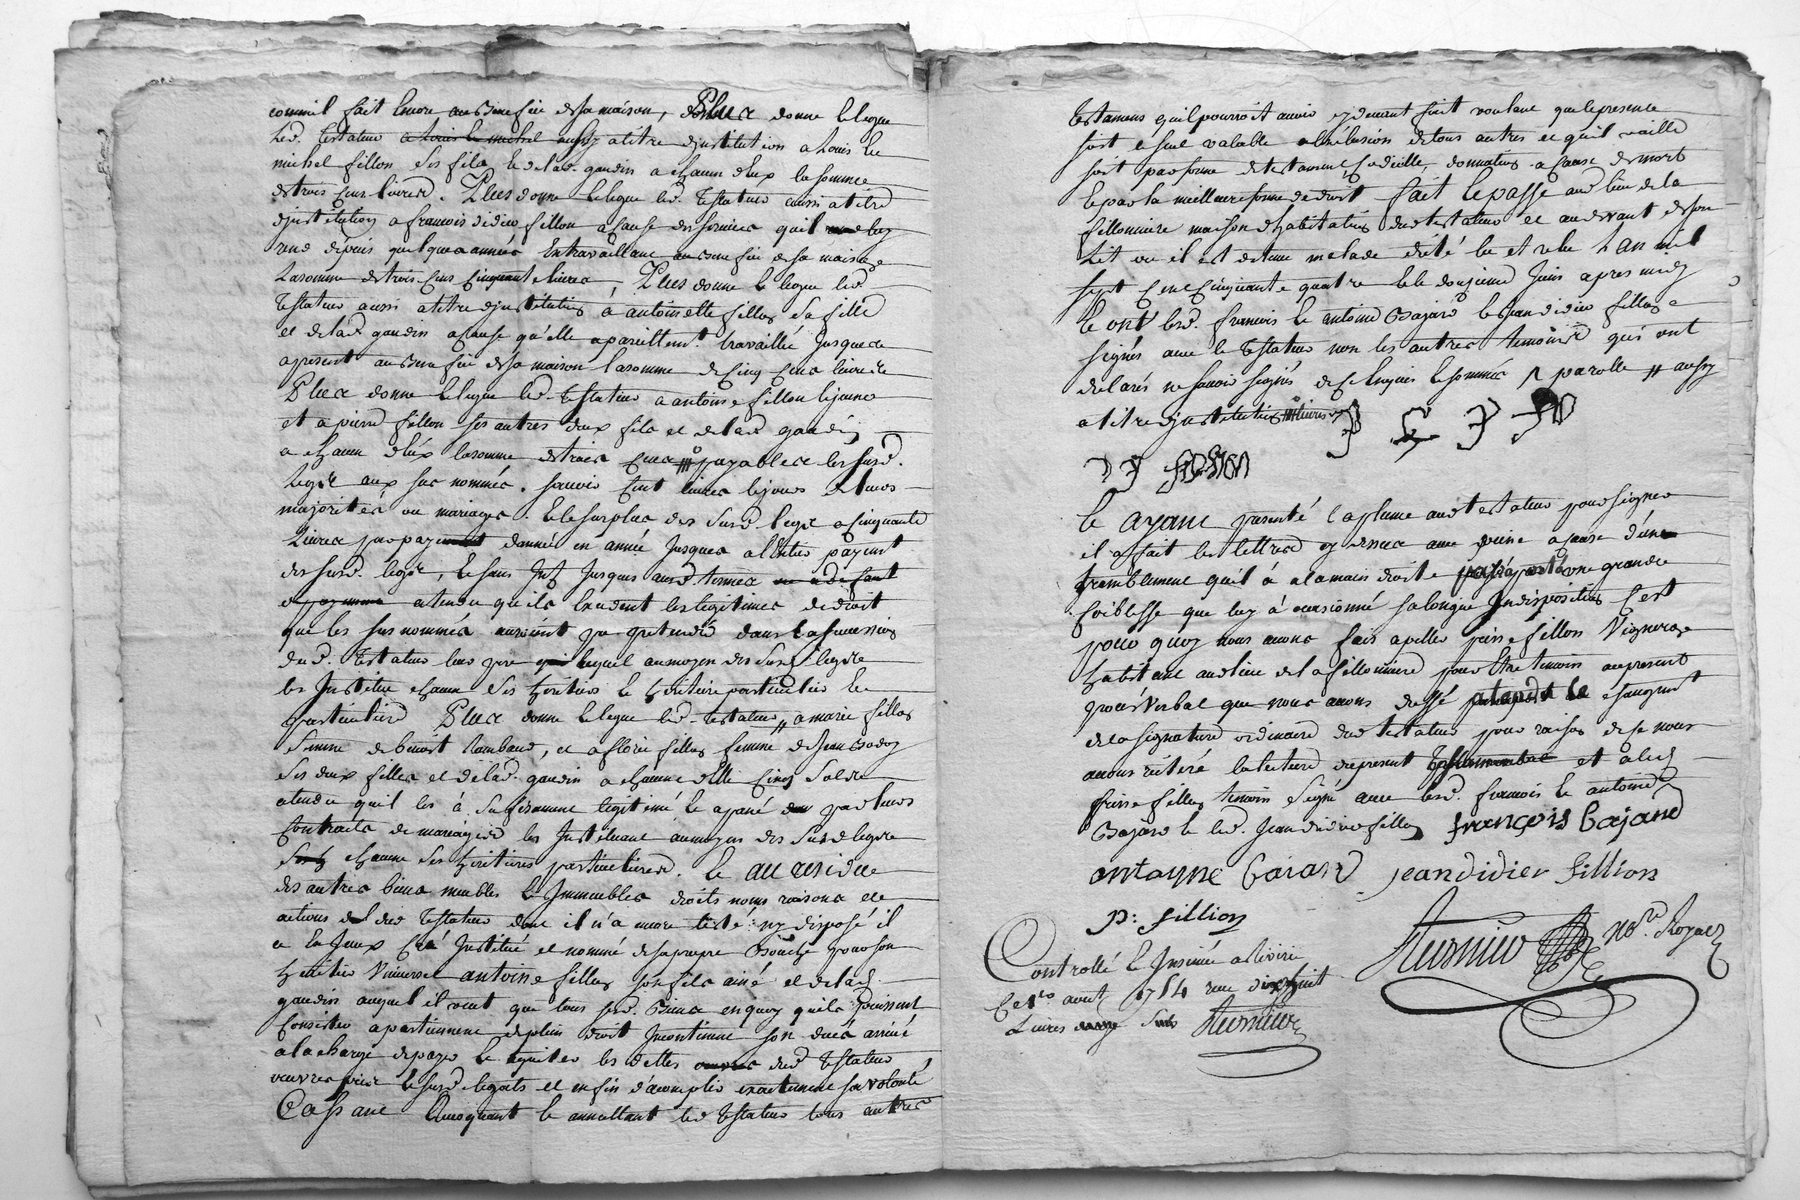 comm'il fait encore au benefice de sa maison, Plus donne et legue
led. testateur a Louis le michel aussy a titre d'jnstitution a Louis et
michel fillon ses fils et de lad. gaudin a chacun d'eux la somme
de trois cens livres. Plus donne et legue led. Testateur aussi a titre
d'jnstitution a francois didier fillon a cause des services qu'il luy
rend depuis quelques années En travaillant au benefice de sa maison
La somme de trois cens cinquante livres, Plus donne et legue led.
Testateur aussi a titre d'jnstitution a antoinette fillon sa fille
et de lad. gaudin a cause qu'elle a pareillemt. travaillé jusques
a present au benefice de sa maison la somme de cinq cens livres
Plus donne et legue led. Testateur a antoine fillon le jeune
et a pierre fillon ses autres deux fils et de lad. gaudin
a chacun d'eux la somme de trois cens payables les susd.
legs aux sus nommés. Sauoir cent livres le jour de leurs
majorités ou mariages. Et le surplus des susd. legs a cinquante
Livres par payement d'année en année jusques a l'entier payemt.
des susd. legs, Et sans jnt. jusques aud. termes
atendu qu'ils Excedent les legitimes de droit
que les sus nommés auroient pu pretendre dans la succession
dud. Testateur leur pere lequel au moyen des susd. legs
les Institue chacun ses heritiers et heritiere particuliers et
particuliere Plus donne et legue led. testateur a marie fillon
femme de benoist Rambaud, et a fleurie fillon femme de Jean
ses deux filles et de lad. gaudin a chacune d'elle Cinq Sols
atendu qu'il les á sufisamment legitimé et apané par leurs
Contracts de mariage et les Instituant au moyen des susd. legs
chacune ses heritieres particulieres. Et au residu
des autres biens meubles et Immeubles droits noms raisons et
actions dud. Testateur dont il n'a encore testé ny disposé il
a En Iceux Créé Jnstitué et nommé de sa propre Bouche pour son
heritier Universel antoine fillon son fils ainé et de lad.
gaudin auquel il veut que tous sesd. Biens en quoy qu'ils puissent
Consister apartiennent de plein droit Jncontinent son deces arrivé
a la charge de payer et aquiter les dettes dud. Testateur
œuvres pies et susd. legats et enfin d'acomplir exactement sa volonté
Cassant Revoquant et annullant led. Testateur tous autres
testamens qu'il pourroit avoir cy devant fait voulant que le present
soit seul valable a l'exclusion de tous autres et qu'il vaille
soit par forme de testament Codicille donnation a cause de mort
et par la meilleure forme de droit fait et passé aud. lieu de la
fillonniere maison d'habitation dud. testateur et au devant de son
Lit ou il est detenu malade de eté lu et relu L'an mil
sept cent cinquante quatre et le douzieme Juin apres midy
Et ont lesd. francois et antoine Bajard et Jean didier fillon
signés avec le testateur non les autres temoins qui ont
declarés ne savoir signés de ce Enquis et sommés parolle // aussy
a titre d'jnstitution
Et Ayant presenté la plume aud. testateur pour signer
il a fait les lettres cy dessus avec peine a cause d'un
tremblement qu'il á a la main droite par une grande
foiblesse que luy á occasionné sa longue Jndisposition C'est
pour quoy nous avons fait apeller pierre fillon Vigneron
habitant aud. lieu de la fillonniere pour Etre temoin au present
procés Verbal que nous avons dressé changemt.
de la signature ordinaire dud. testateur pour raison de ce nous
avons reiteré la lecture du present et a led.
pierre fillon temoin signé avec lesd. francois et antoine
Bajard et led. Jean didier fillon françois bajard
antoyne baiard jean didier fillion
p: fillion
not.re Royal
Controllé et Jnsinué a Riverie
Ce 1er aout 1754 recu dix huit
Livres